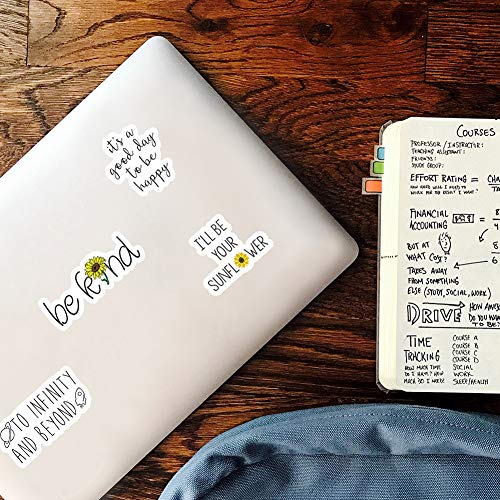 it's a
good day
to be
happy
be kind
I'LL BE
YOUR
SUNFLOWER
TO INFINITY
AND BEYOND
COURSES
PROFESSOR / INSTRUCTOR:
TEACHING ASSISTANT:
FRIENDS:
STUDY GROUP:
EFFORT RATING =
HOW MUCH WILL I NEED TO
WORK FOR THE RESULT I WANT?
FINANCIAL
ACCOUNTING
BUT AT
WHAT COST?
TAKES AWAY
FROM SOMETHING
ELSE (STUDY, SOCIAL, WORK)
DRIVE
HOW
DO YOU WANT
TO BE?
TIME
TRACKING
HOW MUCH TIME
DO I HAVE? HOW
MUCH DO I NEED?
COURSE A
COURSE B
COURSE C
COURSE D
SOCIAL
WORK
SLEEP/HEALTH